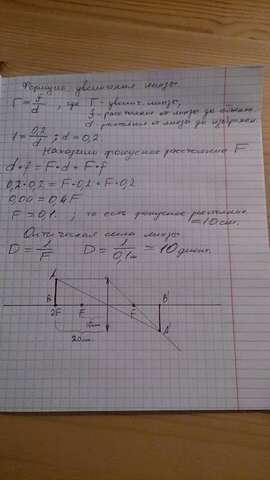 Формула увеличения линзы
Г = f/d, где Г - увелич. линзы,
f - расстояние от линзы до
d - расстояние от линзы до изображен.
1 = 0,2/d ; d = 0,2
Находим фокусное расстояние F
d·f = F·d + F·f
0,2·0,2 = F·0,2 + F·0,2
0,04F
F = 0,1. ; то есть фокусное расстояние
= 10 см.
Оптическая сила линзы
D = 1/F D = 1/0,1м = 10 дптр.
A
B 2F F F B' A'
20см